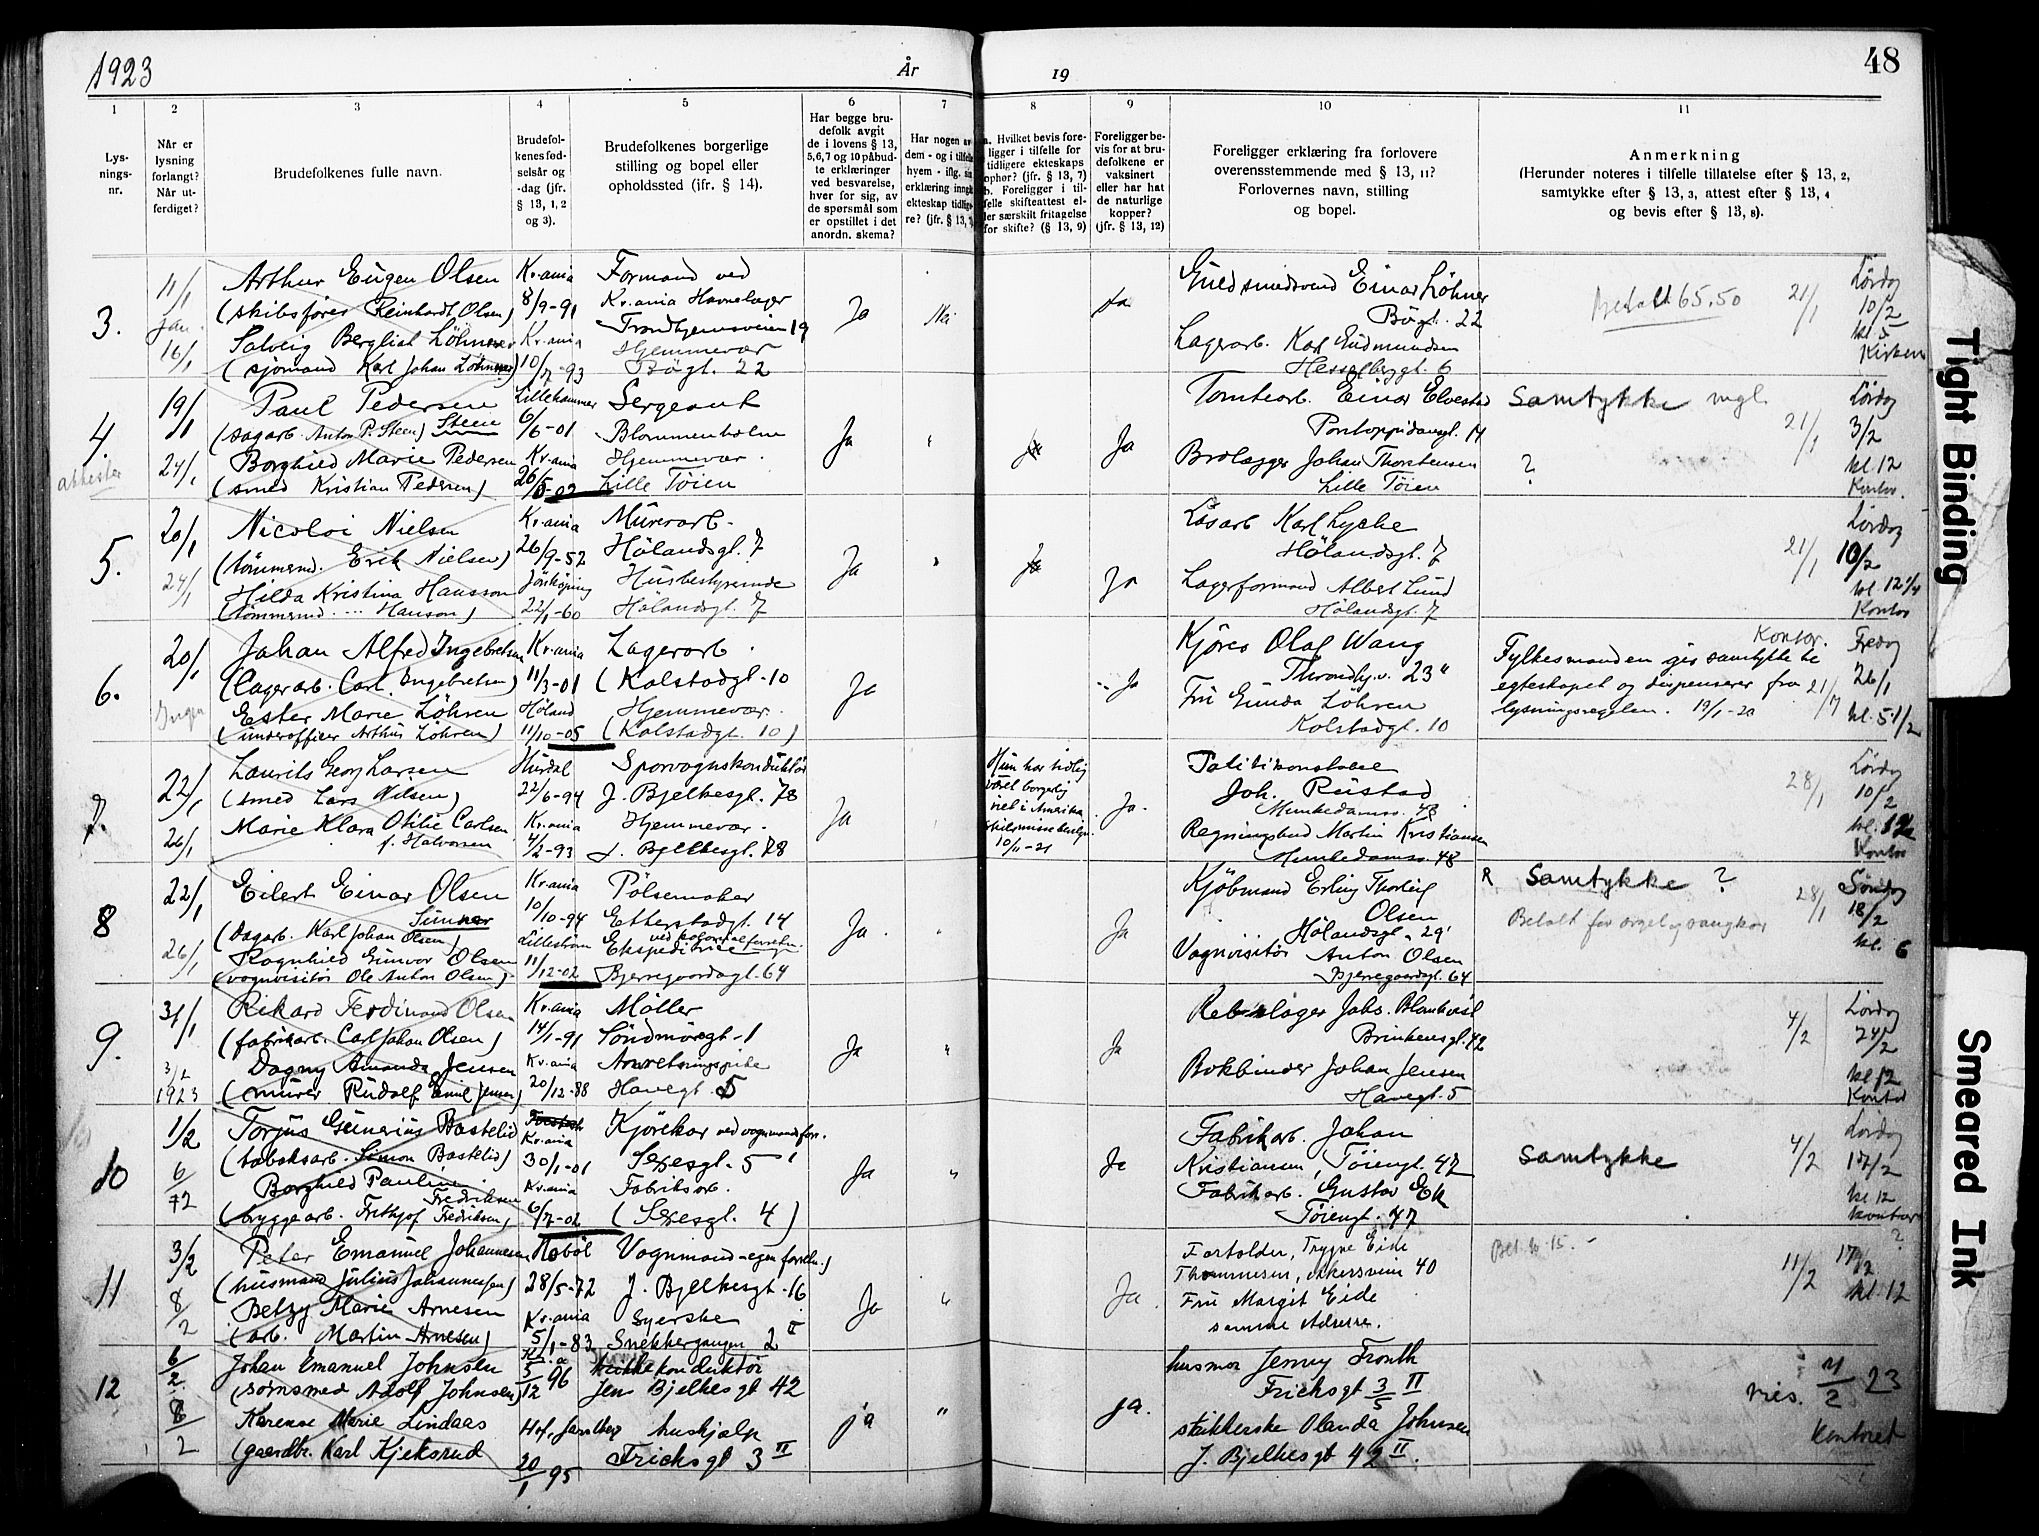 1923 År 19 48
1 2 3 4 5 6 7 8 9 10 11
Lys-
nings-
nr.
Når er
lysning
forlangt?
Når ut-
ferdiget?
Brudefolkenes fulle navn.
Brudefol-
kenes fød-
selsår og
-dag (jfr.
§ 13, 1, 2
og 3).
Brudefolkenes borgerlige
stilling og bopel eller
opholdssted (jfr. § 14).
Har begge bru-
defolk avgit
de i lovens § 13,
5,6,7 og 10 påbud-
te erklæringer
ved besvarelse,
hver for sig, av
de spørsmål som
er opstillet i det
anordn. skema?
Har nogen av
dem - og i tilfelle
hvem - iflg. sin
erklæring inngått
ekteskap tidlige-
re? (jfr. § 13,
a. Hvilket bevis fore-
ligger i tilfelle for
tidligere ekteskaps
ophør? (jfr. § 13, 7)
b. Foreligger i til-
felle skifteattest el-
ler særskilt fritagelse
for skifte? (§ 13, 9)
Foreligger be-
vis for at bru-
defolkene er
vaksinert
eller har hat
de naturlige
kopper?
(jfr. § 13, 12)
Foreligger erklæring fra forlovere
overensstemmende med § 13, 11?
Forlovernes navn, stilling
og bopel.
Anmerkning
(Herunder noteres i tilfelle tillatelse efter § 13, 2,
samtykke efter § 13, 3, attest efter § 13, 4
og bevis efter § 13, 8).
3.
11/1
Jan.
16/1
Arthur Eugen Olsen
(skibsfører Reinhardt Olsen)
Solveig Bergliot Löhner
(sjömand Karl Johan Löhner)
Kr.ania
8/9-91
Kr.ania
10/7-93
Formand ved
Kr.ania Havnelager
Trondhjemsveien 19
Hjemmevær
Bögt. 22
Ja Nei Ja
Guldsmedsvend Einar Löhner
Bögt. 22
Lagerarb. Karl Gudmundsen
Hesselbergt. 6
Betalt 65.50
21/1
Lördag
10/2
kl. 5
Kirken
4.
attester
19/1
24/1
Paul Pedersen
(sagarb. Anton P. Steen) Steen
Borghild Marie Pedersen
(smed Kristian Pedersen)
Lillehammer
6/6-01
Kr.ania
26/5-02
Sergeant
Blommenholm
Hjemmevær.
Lille Töien
Ja " Ja
Tomtearb. Einar Elvestad
Pontoppidansgt. 14
Brolægger Johan Thorstensen
Lille Töien
Samtykke mgl.
?
21/1
Lördag
3/2
kl. 12
Kontor.
5.
20/1
24/1
Nicolai Nielsen
(tömmermd. Erik Nielsen)
Hilda Kristina Hansson
(tömmermd. ... Hanson)
Kr.ania
26/9-52
Jönköping
22/1-60
Murerarb.
Hölandsgt. 7
Husbestyrerinde
Hölandsgt. 7
Ja " Ja Ja
Lösarb Karl Lycke
Hölandsgt. 7
Lagerformand Albert Lund
Hölandsgt. 7
21/1
Lördag
10/2
kl. 12 1/4
Kontor
6.
20/1
Ingen
Johan Alfred Ingebretsen
(Lagerarb. Carl Ingebretsen)
Ester Marie Löhren
(underofficer Arthur Löhren)
Kr.ania
11/3-01
Höland
11/10-05
Lagerarb.
(Kolstadgt. 10
Hjemmevær.
(Kolstadgt. 10)
Ja Ja
Kjörer Olaf Wang
Throndhj.v. 23"
Fru Gunda Löhren
Kolstadgt. 10
Kontor.
Fylkesmanden gir samtykke til
egteskapet og dispenserer fra
lysningsregelen. 19/1-23
21/7
Fredag
26/1
kl. 5 1/2
7.
22/1
26/1
Laurits Georg Larsen
(smed Lars Nilsen)
Marie Klara Otilie Carlsen
f. Halvorsen
Hurdal
22/6-94
Kr.ania
4/2-93
Sporvognskonduktör
J. Bjelkesgt. 78
Hjemmevær.
J. Bjelkesgt. 78
Ja
Hun har tidlig
været borgerlig
viet i Amerika
10/11-21
Ja.
Politikonstabel
Joh. Rustad
Munkedamsv. 48
Regningsbud Martin Kristiansen
Munkedamsv. 48
28/1
Lördag
10/2
kl. 12
Kontor
8
22/1
26/1
Eilert Einar Olsen
Simner
(Dagarb. Karl Johan Olsen)
Ragnhild Gunvor Olsen
(vognvisitör Ole Anton Olsen)
Kr.ania
10/10-94
Lilleström
11/12-02
Pölsemaker
Etterstadgt. 14
ved kolonialforretn.
Ekspeditrice
Bjerregaardsgt. 64
Ja. " Ja
Kjöbmand Erling Thorleif
Olsen
Hölandsgt. 29
Vognvisitör Anton Olsen
Bjerregaardsgt. 64
R Samtykke ?
Betalt for orgel og sangkor
28/1
Söndag
18/2
kl. 6
9.
31/1
3/2
1923
Rikard Ferdinand Olsen
(fabrikarb. Carl Johan Olsen)
Dagny Amanda Jensen
(murer Rudolf Emil Jensen)
Kr.ania
14/1-91
Kr.ania
20/12-88
Möller
Söndmöregt. 1
Anretningspike
Havegt. 5
Ja " Ja
Rebslager Johs. Blomkvist
Brinkensgt. 42
Bokbinder Johan Jensen
Havegt. 5
4/2
Lördag
24/2
kl 12
Kontor
10
1/2
6/2
Torjus Gunerius Bastelid
(tobaksarb. Simon Bastelid)
Borghild Pauline
Fredriksen
(bryggearb. Frithjof Fredriksen)
Kr.ania
30/1-01
Kr.ania
6/7-02
Kjörekar ved vognmandsforr.
Sexesgt. 5
Fabriksarb.
(Sexesgt. 4)
Ja " Ja
Fabrikarb. Johan
Kristiansen, Töiengt. 47
Fabrikarb. Gustav Ek
Töiengt. 47
Samtykke
4/2
Lördag
17/2
kl 12
Kontor
11
3/2
8/2
Peter Emanuel Johannesen
(husmand Julius Johannesen)
Betzy Marie Arnesen
(arb. Martin Arnesen)
Hobøl
28/5-72
Kr.ania
5/1-83
Vognmand - egen forretn.)
J. Bjelkesgt. 16
Syerske
Snekkergangen 2 II
Ja " Ja.
Forholder, Trygve Eide
Thommesen, Akersvein 40
Fru Margit Eide
samme Adresse.
Bet. kr. 15.-
11/2
?
17/2
kl. 12
12
6/2
8/2
Johan Emanuel Johnsen
(sømsmed Adolf Johnsen)
Karense Marie Lindaas
(gaardbr. Karl Kjeksrud
Kr.a
5/12 96
Hof, Jarlsberg
20/1 95
trikkekonduktör
Jens Bjelkesgt 42
hushjælp
Fricksgt 3 II
ja " ja.
husmor Jenny Fronth
Fricksgt 3/5 II
strikkerske Olanda Johnsen
J. Bjelkesgt 42 II.
vies. 11/2 23
Kontoret
Tight Binding
Smeared Ink